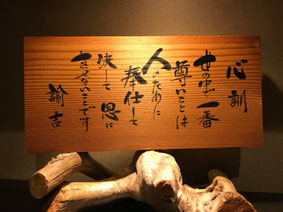 心訓
世の中で一番
尊いことは
人のために
奉仕して
決して恩に
きせないことです
諭吉